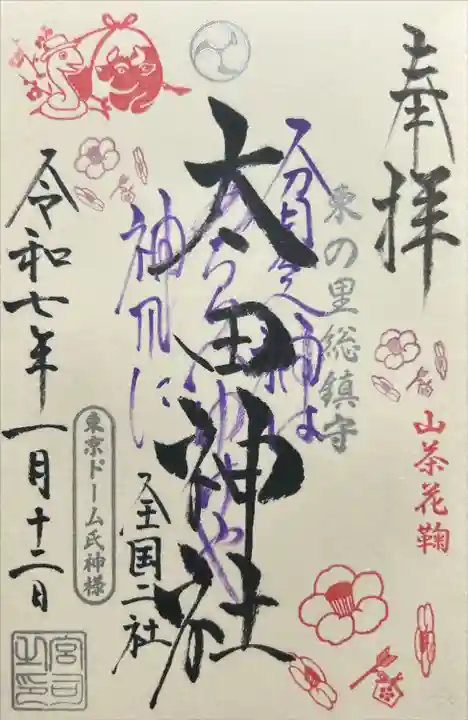 奉拝
山茶花鞠
東の里総鎮守
貧乏神は
神界に
太田神社
全国二社
東京ドーム氏神様
令和七年一月十二日
宮司之印